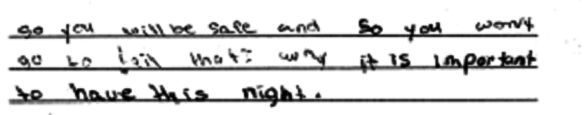 so you will be safe and so you won't
go to jail that's why it is important
to have this night.